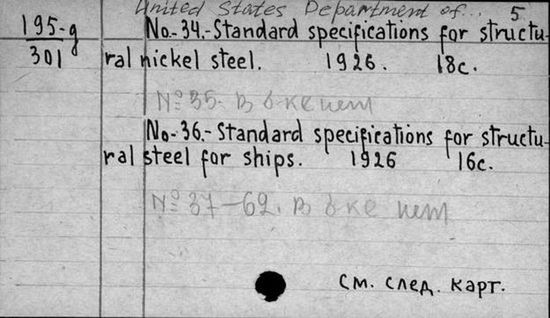 United States Department of... 5
195-g
301
No.-34.-Standard specifications for structu-
ral nickel steel. 1926. 18c.
№ 35. В б-ке нет
No.-36.-Standard specifications for structu-
ral steel for ships. 1926 16c.
№ 37-62. В б-ке нет
См. след. карт.